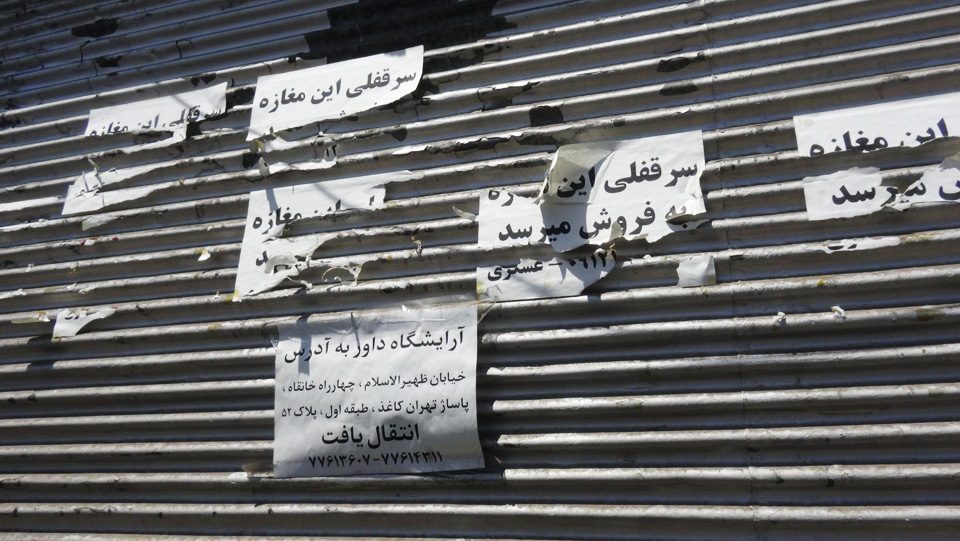 سرقفلی این مغازه
سرقفلی این مغازه
این مغازه
سرقفلی این
به فروش میرسد
عسگری
این مغازه
میرسد
آرایشگاه داور به آدرس
خیابان ظهیرالاسلام ، چهارراه خانقاه ،
پاساژ تهران کاغذ ، طبقه اول ، پلاک ۵۲
انتقال یافت
۷۷۶۱۳۶۰۷-۷۷۶۱۴۳۱۱